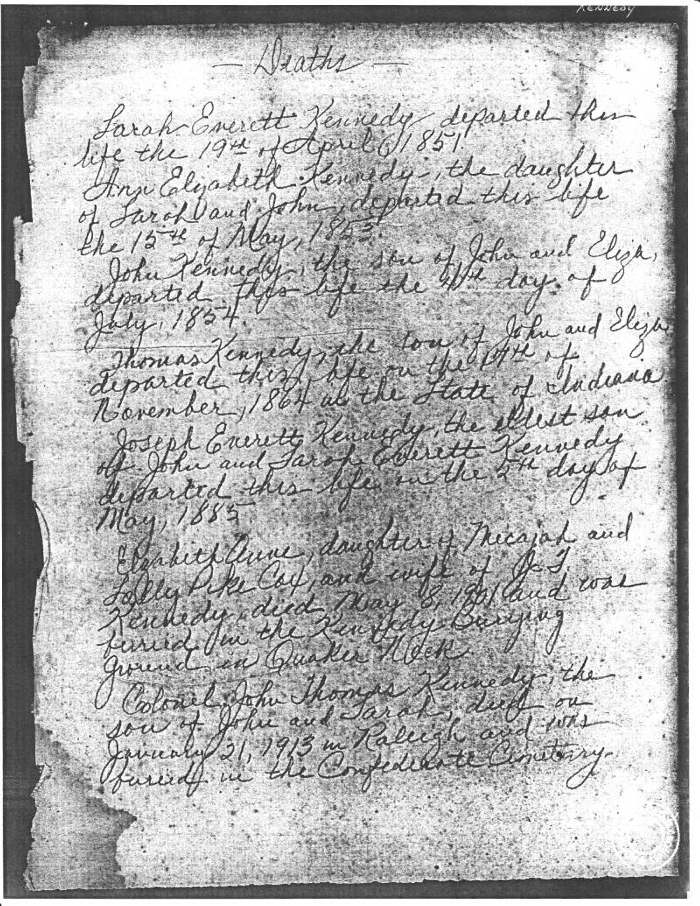 KENNEDY
— Deaths —
Sarah Everett Kennedy departed this
life the 19th of April, 1851
Ann Elizabeth Kennedy, the daughter
of Sarah and John, departed this life
the 15th of May, 1853.
John Kennedy, the son of John and Eliza,
departed this life the 4th day of
July, 1854.
Thomas Kennedy, the son of John and Eliza
departed this life on the 14th of
November, 1864 in the State of Indiana
Joseph Everett Kennedy, the eldest son
of John and Sarah Everett Kennedy
departed this life on the 5th day of
May, 1885
Elizabeth Anne, daughter of Micajah and
Sally Pike Cox, and wife of J. T.
Kennedy, died May 8, 1901 and was
buried in the Kennedy Burying
Ground in Quaker Neck
Colonel John Thomas Kennedy, the
son of John and Sarah, died on
January 21, 1913 in Raleigh and was
buried in the Confederate Cemetery.